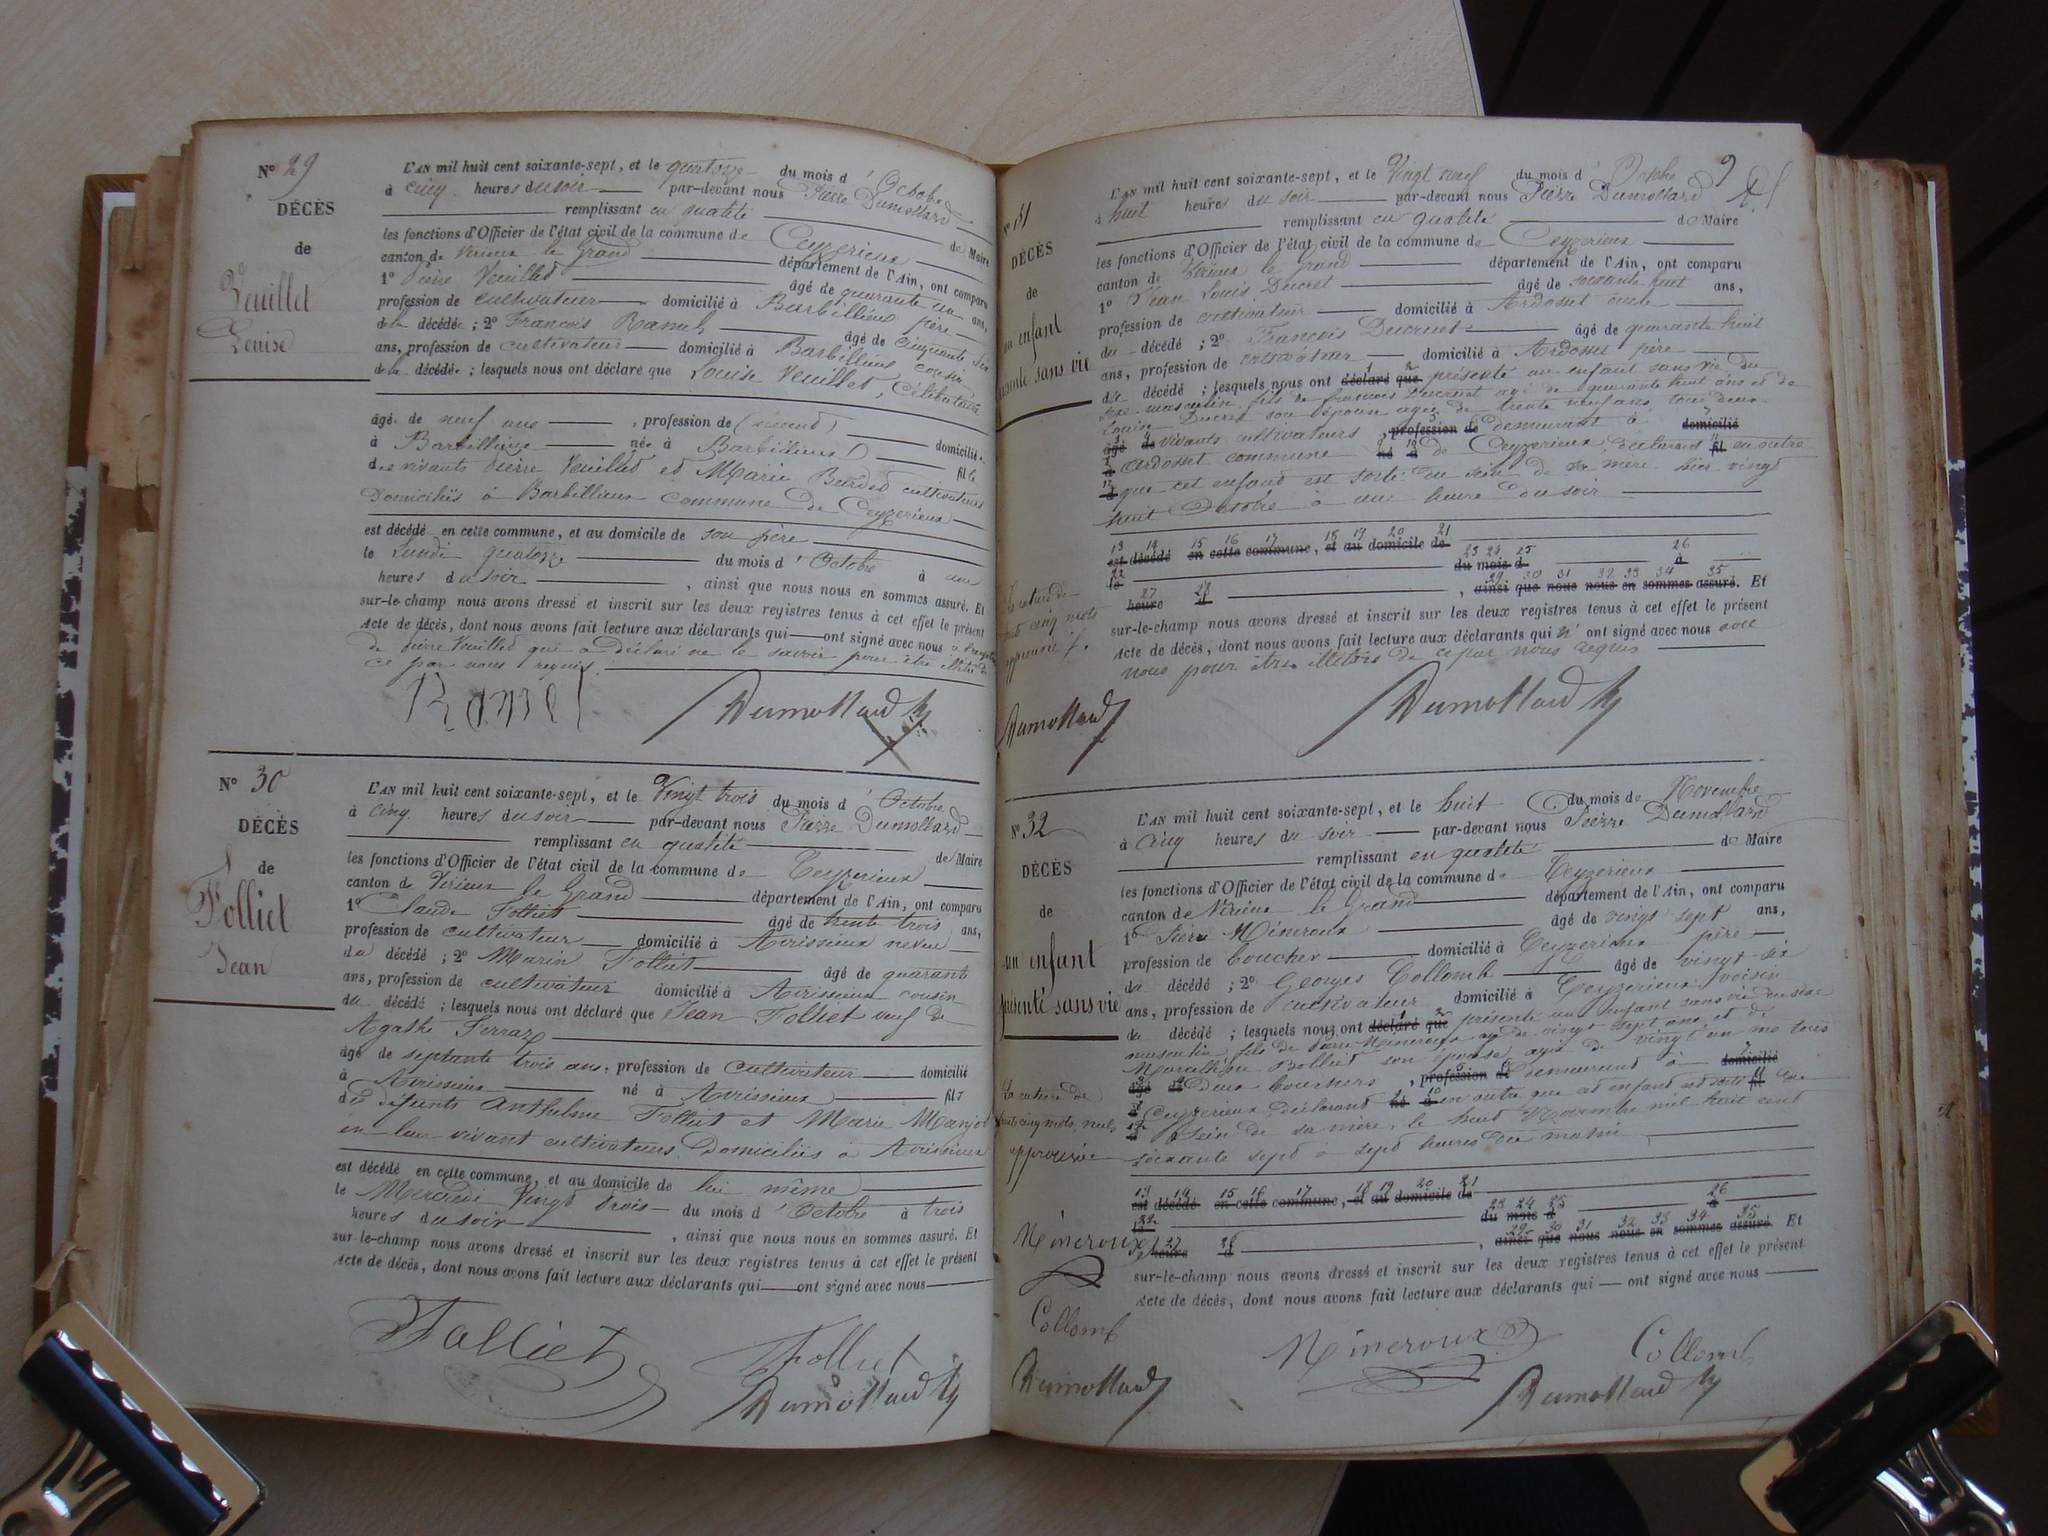 N° 29
DÉCÈS
de
Veuillet
Louise
L'AN mil huit cent soixante-sept, et le quatorze du mois d'Octobre
à cinq heures du soir par-devant nous Pierre Dumollard
remplissant en qualité de Maire
les fonctions d'Officier de l'état civil de la commune de Ceyzerieux
canton de Virieu le Grand département de l'Ain, ont comparu
1° Pierre Veuillet âgé de quarante un ans,
profession de cultivateur domicilié à Barbillieux père
de la décédée ; 2° François Ramel âgé de cinquante six
ans, profession de cultivateur domicilié à Barbillieux cousin
de la décédée ; lesquels nous ont déclaré que Louise Veuillet, Célibataire
âgé de neuf ans , profession de (néant) domiciliée
à Barbillieux née à Barbillieux fille
des vivants Pierre Veuillet et Marie cultivateurs
Domiciliés à Barbillieux commune de Ceyzerieux
est décédé en cette commune, et au domicile de son père
le Lundi quatorze du mois d'Octobre à une
heures du soir , ainsi que nous nous en sommes assuré. Et
sur-le-champ nous avons dressé et inscrit sur les deux registres tenus à cet effet le présent
Acte de décès, dont nous avons fait lecture aux déclarants qui ont signé avec nous
de Pierre Veuillet qui a déclaré ne le savoir pour être illétré de
ce par nous requis
Ramel Dumollard
N° 30
DÉCÈS
de
Folliet
Jean
L'AN mil huit cent soixante-sept, et le Vingt trois du mois d'Octobre
à cinq heures du soir par-devant nous Pierre Dumollard
remplissant en qualité de Maire
les fonctions d'Officier de l'état civil de la commune de Ceyzerieux
canton de Virieu le Grand département de l'Ain, ont comparu
1° Claude Folliet âgé de trente trois ans,
profession de cultivateur domicilié à Avrissieux neveu
du décédé ; 2° Marin Folliet âgé de quarante
ans, profession de cultivateur domicilié à Avrissieux cousin
du décédé ; lesquels nous ont déclaré que Jean Folliet veuf de
Agathe Ferraz
âgé de septante trois ans, profession de cultivateur domicilié
à Avrissieux né à Avrissieux fils
des défunts Anthelme Folliet et Marie Manjot
en leur vivant cultivateurs Domiciliés à Avrissieux
est décédé en cette commune, et au domicile de lui même
le Mercredi Vingt trois du mois d'Octobre à trois
heures du soir , ainsi que nous nous en sommes assuré. Et
sur-le-champ nous avons dressé et inscrit sur les deux registres tenus à cet effet le présent
Acte de décès, dont nous avons fait lecture aux déclarants qui ont signé avec nous
Folliet Folliet
Dumollard
9
N° 31
DÉCÈS
de
un enfant
présenté sans vie
L'AN mil huit cent soixante-sept, et le Vingt neuf du mois d'Octobre
à huit heures du soir par-devant nous Pierre Dumollard
remplissant en qualité de Maire
les fonctions d'Officier de l'état civil de la commune de Ceyzerieux
canton de Virieu le Grand département de l'Ain, ont comparu
1° Jean Louis Ducret âgé de soixante huit ans,
profession de cultivateur domicilié à Ardosset oncle
du décédé ; 2° François Ducruet âgé de quarante huit
ans, profession de cultivateur domicilié à Ardosset père
du décédé ; lesquels nous ont déclaré que présenté un enfant sans vie du
sexe masculin, fils de François Ducruet agé de quarante huit ans et de
Louise Ducret son épouse agée de trente neuf ans tous deux
âgé de vivants cultivateurs , profession de demeurant à domicilié
à Ardosset commune né à de Ceyzerieux, déclarant fil en outre
d que cet enfant est sorti du sein de sa mère hier vingt
huit Octobre à une heure du soir
13 14 15 16 17 18 19 20 21
est décédé en cette commune, et au domicile de
22 23 24 25 26
le du mois d à
27 28 29 30 31 32 33 34 35
heure d , ainsi que nous nous en sommes assuré. Et
sur-le-champ nous avons dressé et inscrit sur les deux registres tenus à cet effet le présent
Acte de décès, dont nous avons fait lecture aux déclarants qui n'ont signé avec nous
nous pour être illétrés de ce par nous requis
La rature de
cinq mots
approuvée
Dumollard Dumollard
N° 32
DÉCÈS
de
un enfant
présenté sans vie
L'AN mil huit cent soixante-sept, et le huit du mois de Novembre
à cinq heures du soir par-devant nous Pierre Dumollard
remplissant en qualité de Maire
les fonctions d'Officier de l'état civil de la commune de Ceyzerieux
canton de Virieu le Grand département de l'Ain, ont comparu
1° Pierre Mineroux âgé de vingt sept ans,
profession de boucher domicilié à Ceyzerieux père
du décédé ; 2° Georges Collomb âgé de vingt-six
ans, profession de cultivateur domicilié à Ceyzerieux voisin
du décédé ; lesquels nous ont déclaré que présenté un Enfant sans vie du sexe
masculin, fils de Pierre Mineroux agé de vingt sept ans et de
Bolliet son épouse agée de vingt un ans tous
âgé de Deux bouchers , profession de demeurant à domicilié
à Ceyzerieux, déclarant né à en outre que cet enfant est sorti fil du
d sein de sa mère, le huit Novembre mil huit cent
soixante sept à sept heures du matin
13 14 15 16 17 18 19 20 21
est décédé en cette commune, et au domicile de
22 23 24 25 26
le du mois d à
27 28 29 30 31 32 33 34 35
heure d , ainsi que nous nous en sommes assuré. Et
sur-le-champ nous avons dressé et inscrit sur les deux registres tenus à cet effet le présent
Acte de décès, dont nous avons fait lecture aux déclarants qui ont signé avec nous
La rature de
trente cinq mots nuls
approuvée
Mineroux
Collomb
Dumollard
Mineroux Collomb
Dumollard